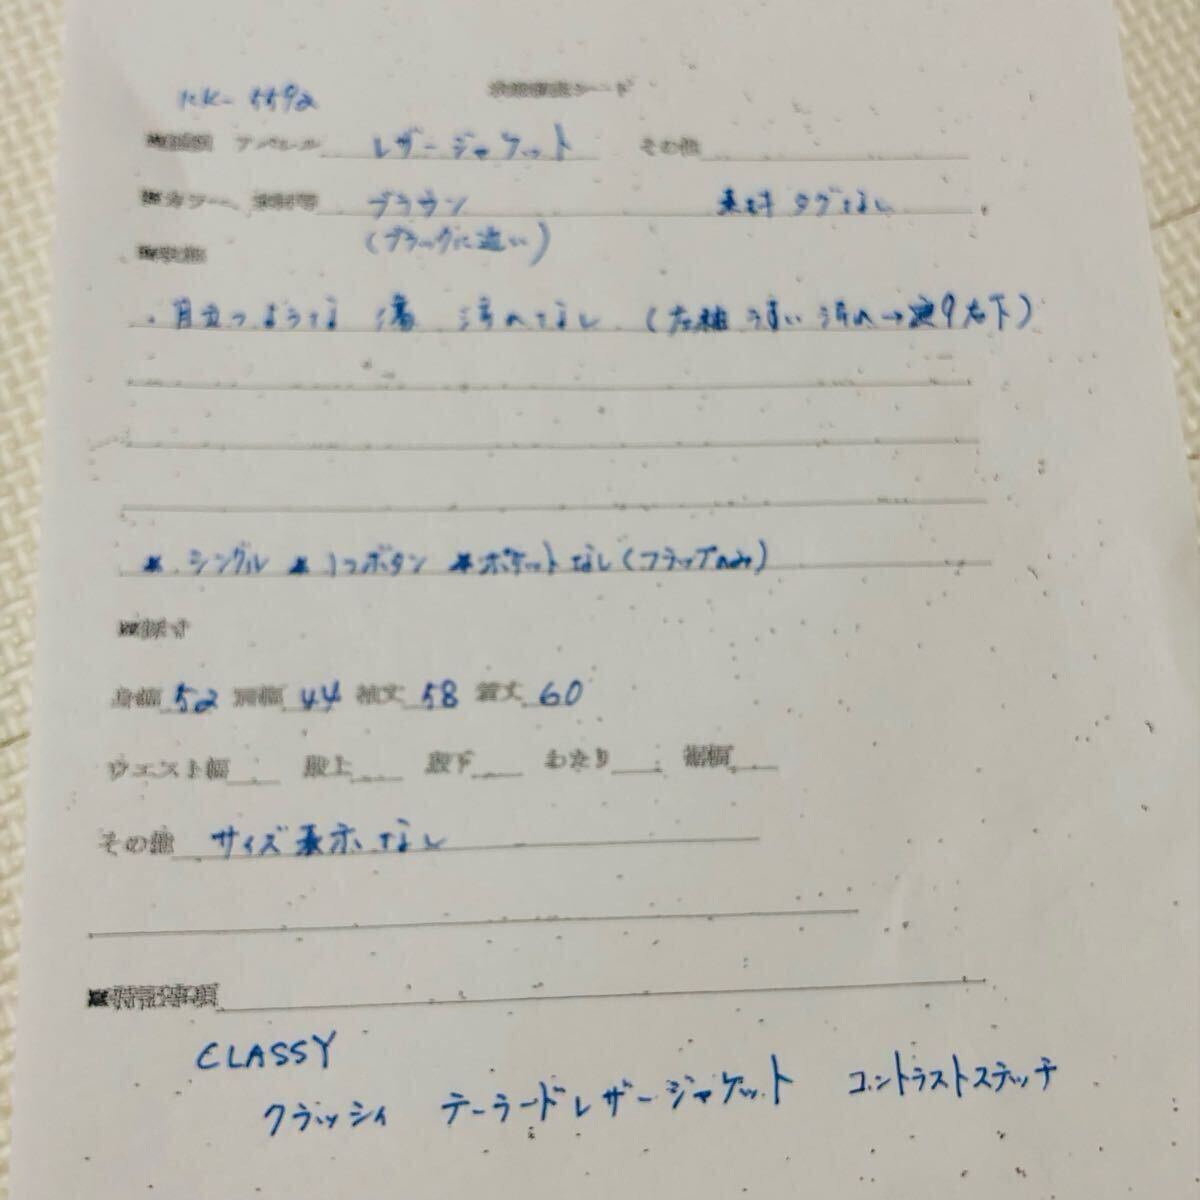 KK-5592
アパレル レザージャケット その他
カラー、素材等 ブラウン 素材タグなし
(ブラックに近い)
■状態
・目立つような 傷 汚れなし (左袖 うすい 汚れ→ 9右下)
* シングル * 1つボタン * ポケットなし(フラップのみ)
■採寸
身幅 52 肩幅 44 袖丈 58 着丈 60
ウエスト幅 股上 股下 わたり 裾幅
その他 サイズ表示なし
■特記事項
CLASSY
クラッシィ テーラードレザージャケット コントラストステッチ